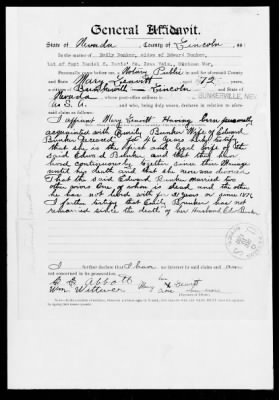 General Affidavit.
State of Nevada, County of Lincoln, ss:
In the matter of Emily Bunker, widow of Edward Bunker,
1st of Capt Daniel C. Davis' Co. Iowa Vols, Mexican War,
Personally came before me, a Notary Public in and for aforesaid County
and State Mary Leavitt aged 72 years
a citizen of Bunkerville Lincoln and State of
Nevada whose post-office address is BUNKERVILLE, NEV.
U. S. A. and who, being duly sworn, declares in relation to afore-
said claim as follows:
I affiant Mary Leavitt Having been personally
acquainted with Emily Bunker Wife of Edward
Bunker Deceased for 46 years do testify
that she is the and legal wife of the
said Edward Bunker and that they have
lived continuously together since their Marriage
until his death and that she was never divorced
That the said Edward Bunker Married two
other wives One of whom is dead and the other
he has not lived with for years or since
I further testify that Emily Bunker has not
remarried since the death of her Husband Ed. Bunker
I further declare that I have no interest in said claim and
not concerned in its prosecution.
Abbott
Wm. Wittwer
her
Mary X Leavitt
mark